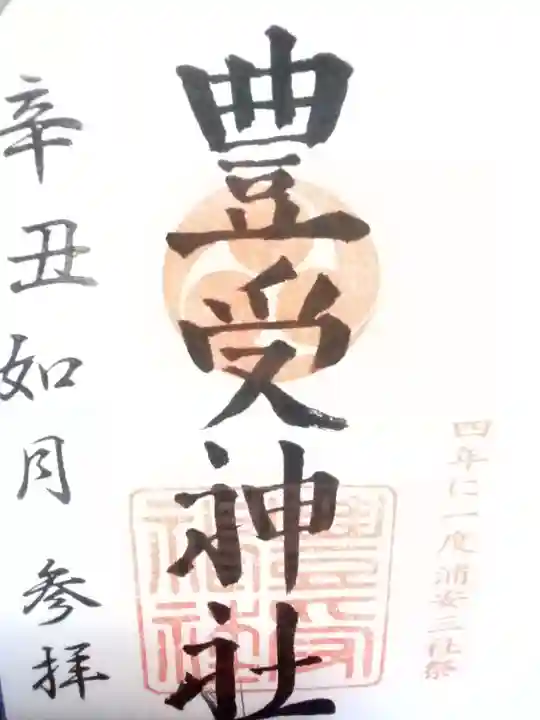 四年に一度浦安三社祭
豊受神社
豊受神社
辛丑如月参拝